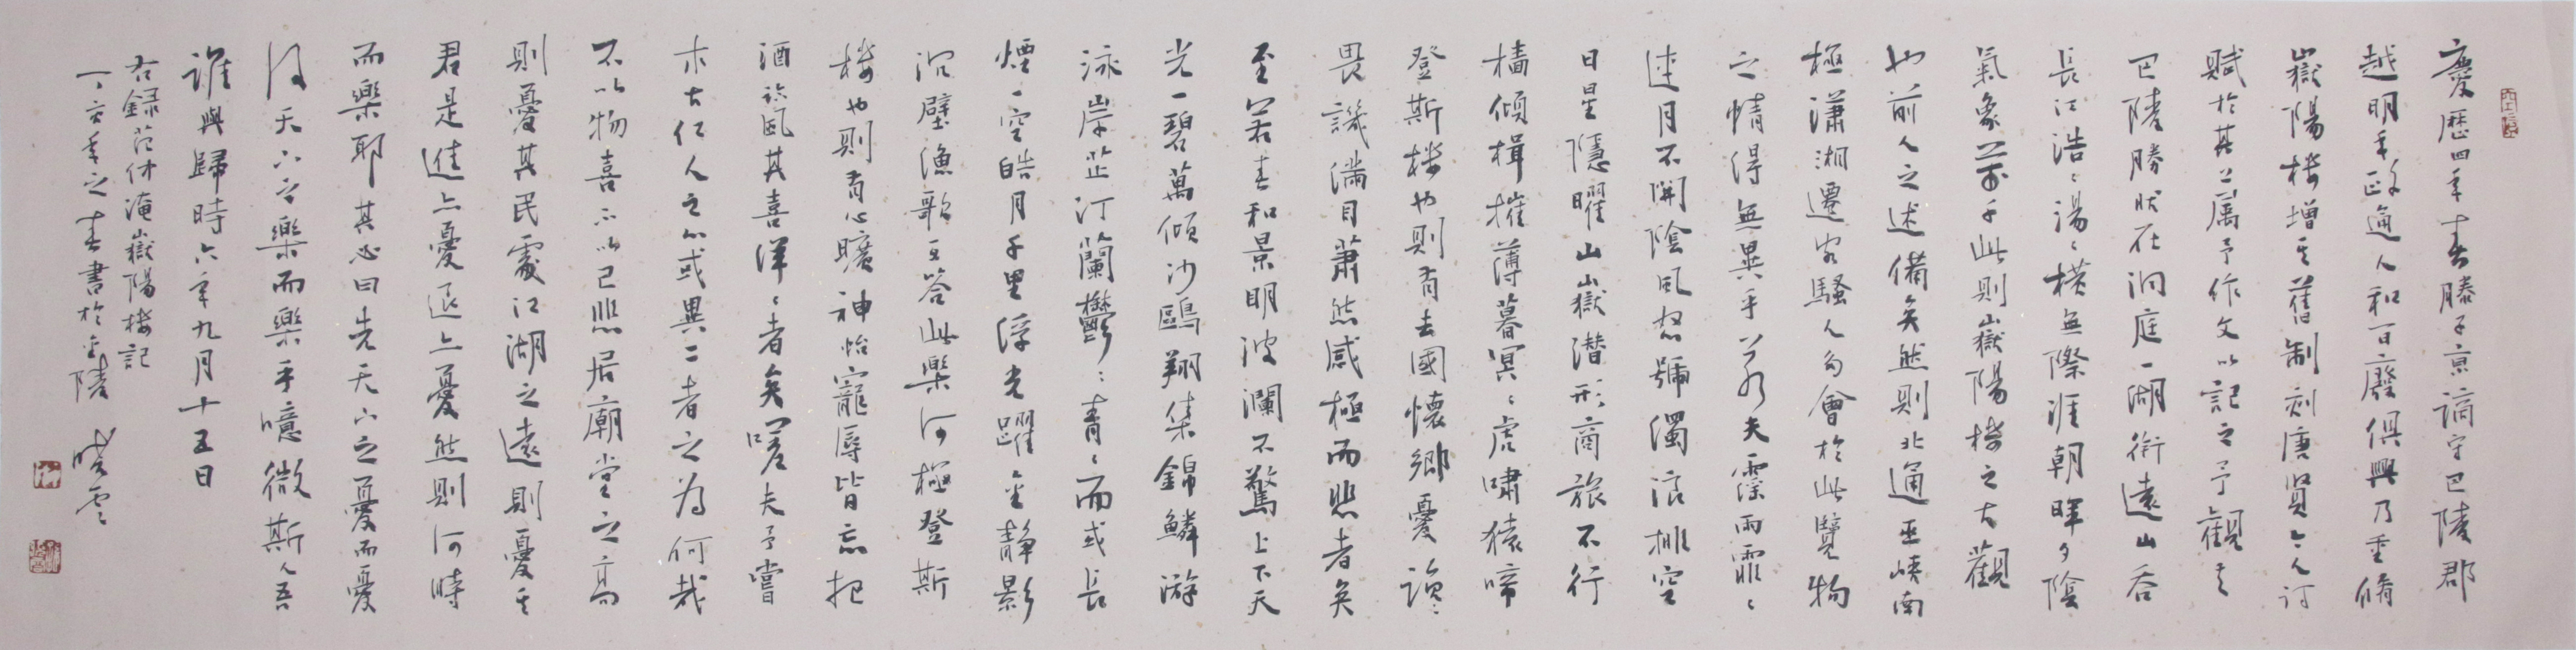 慶歷四年春滕子京謫守巴陵郡
越明年政通人和百廢俱興乃重脩
嶽陽樓增其舊制刻唐賢今人詩
賦於其上属予作文以記之予觀夫
巴陵勝狀在洞庭一湖銜遠山吞
長江浩〻湯〻橫無際涯朝暉夕陰
氣象萬千此則嶽陽樓之大觀
也前人之述備矣然則北通巫峽南
極瀟湘遷客騷人多會於此覽物
之情得無異乎若夫霪雨霏〻
連月不開陰風怒號濁浪排空
日星隱曜山嶽潛形商旅不行
檣傾楫摧薄暮冥〻虎嘯猿啼
登斯樓也則有去國懷鄉憂讒
畏譏滿目蕭然感極而悲者矣
至若春和景明波瀾不驚上下天
光一碧萬傾沙鷗翔集錦鱗游
泳岸芷汀蘭鬱〻青〻而或長
煙一空皓月千里浮光躍金靜影
沉璧漁歌互答此樂何極登斯
樓也則有心曠神怡寵辱皆忘把
酒臨風其喜洋〻者矣嗟夫予嘗
求古仁人之心或異二者之為何哉
不以物喜不以己悲居廟堂之高
則憂其民處江湖之遠則憂其
君是進亦憂退亦憂然則何時
而樂耶其必曰先天下之憂而憂
後天下之樂而樂乎噫微斯人吾
誰與歸時六年九月十五日
右録范仲淹嶽陽樓記
丁亥年之春書於金陵 曉雲